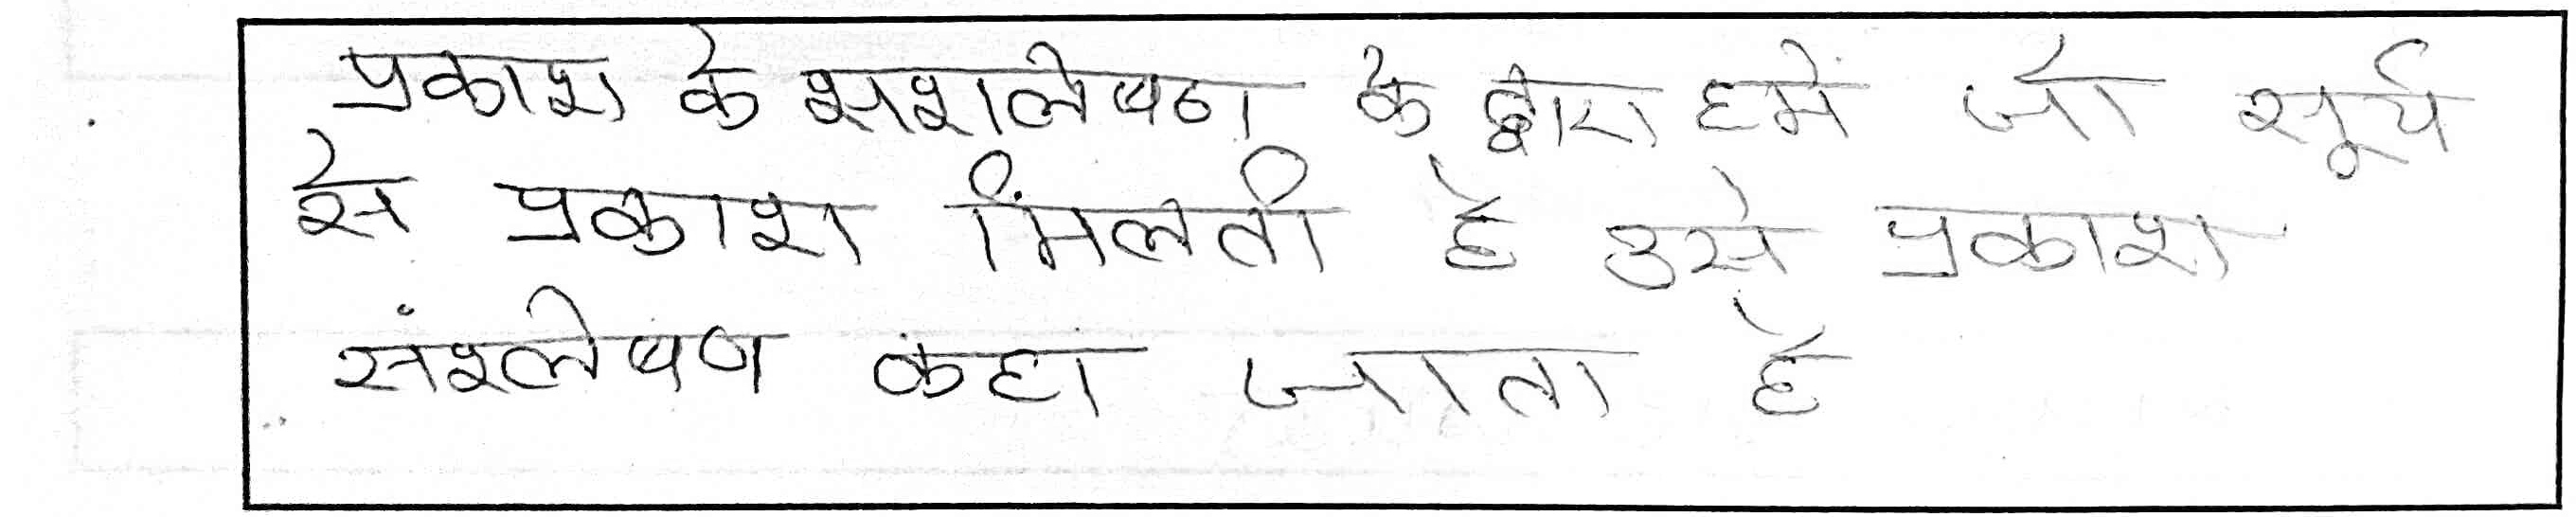 प्रकाश के शशलेषण के द्वारा हमें जो सूर्य
से प्रकाश मिंलती है उसे प्रकाश
संश्लेषण कहा जाता है